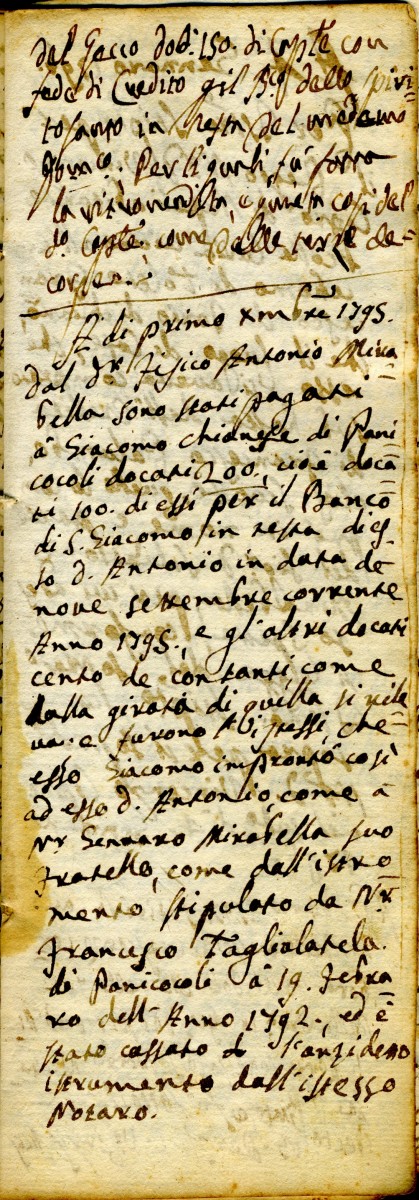 del Gacco dodi: 150. di Cap.le con
fede di Credito gil B.co dello Spiri
to Santo in testa del medemo
Per li quali fù forma
la
d.o Cap.le come delle terze de=
corse.
A' di primo Xmbre 1795.
dal D.r Fisico Antonio Mira
bella sono stati pagati
à Giacomo Chianese di Pani
cocoli docati 200., cioè doca
ti 100. di essi per il Banco
di S. Giacomo in testa di es
so D. Antonio in data de
nove settembre corrente
Anno 1795., e gl'altri docati
cento de contanti, come
dalla girata di quella si rile
va: e furono l'istessi, che=
esso Giacomo improntò così
ad esso D. Antonio, come a
N.r Gennaro Mirabella suo
Fratello, come dall'istro
mento stipulato da N.r
Francesco Taglialatela
di Panicocoli à 19. Febra
ro dell'Anno 1792., ed è
stato cassato l'anzidetto
istrumento dall'istesso
Notaro.